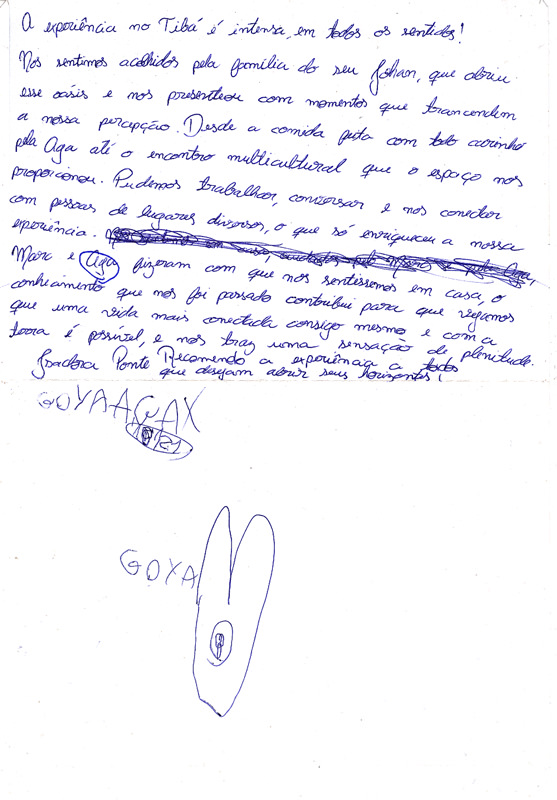 A experiência no Tibá é intensa, em todos os sentidos!
Nos sentimos acolhidos pela família do seu Johan, que abriu
esse oásis e nos presenteou com momentos que trancendem
a nossa percepção. Desde a comida feita com todo carinho
pela Aga até o encontro multicultural que o espaço nos
proporcionou. Pudemos trabalhar, conversar e nos conectar
com pessoas de lugares diversos, o que só enriqueceu a nossa
experiência.
Marc e Aga fizeram com que nos sentíssemos em casa, o
conhecimento que nos foi passado contribui para que vejamos
que uma vida mais conectada consigo mesmo e com a
terra é possível, e nos traz uma sensação de plenitude.
Isadora Ponte Recomendo a experiência a todos
que desejam abrir seus horizontes!
GOYAAGAX
21
GOYA